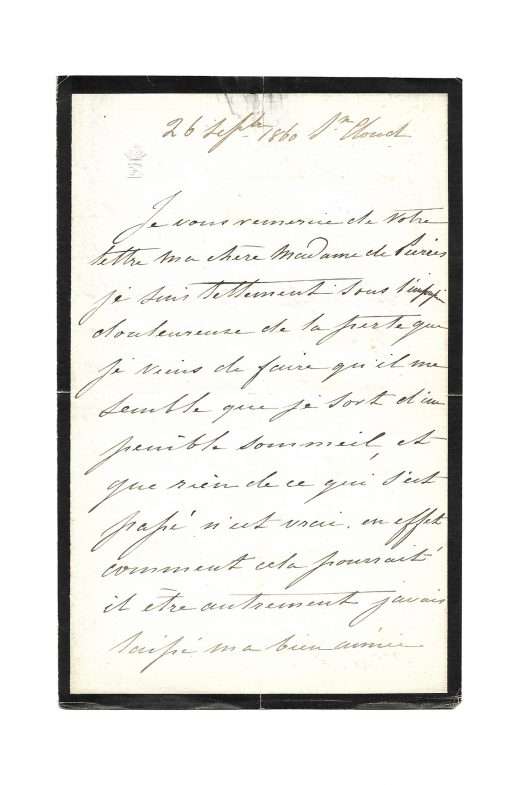 26 Septbre 1860 St Cloud
Je vous remercie de votre
lettre ma chère Madame de
je suis tellement sous l'imp
douleureuse de la perte que
je viens de faire qu'il me
semble que je sort d'un
penible sommeil, et
que rien de ce qui s'est
passé n'est vrai. en effet
comment cela pourrait
il être autrement j'avais
laissé ma bien aimée